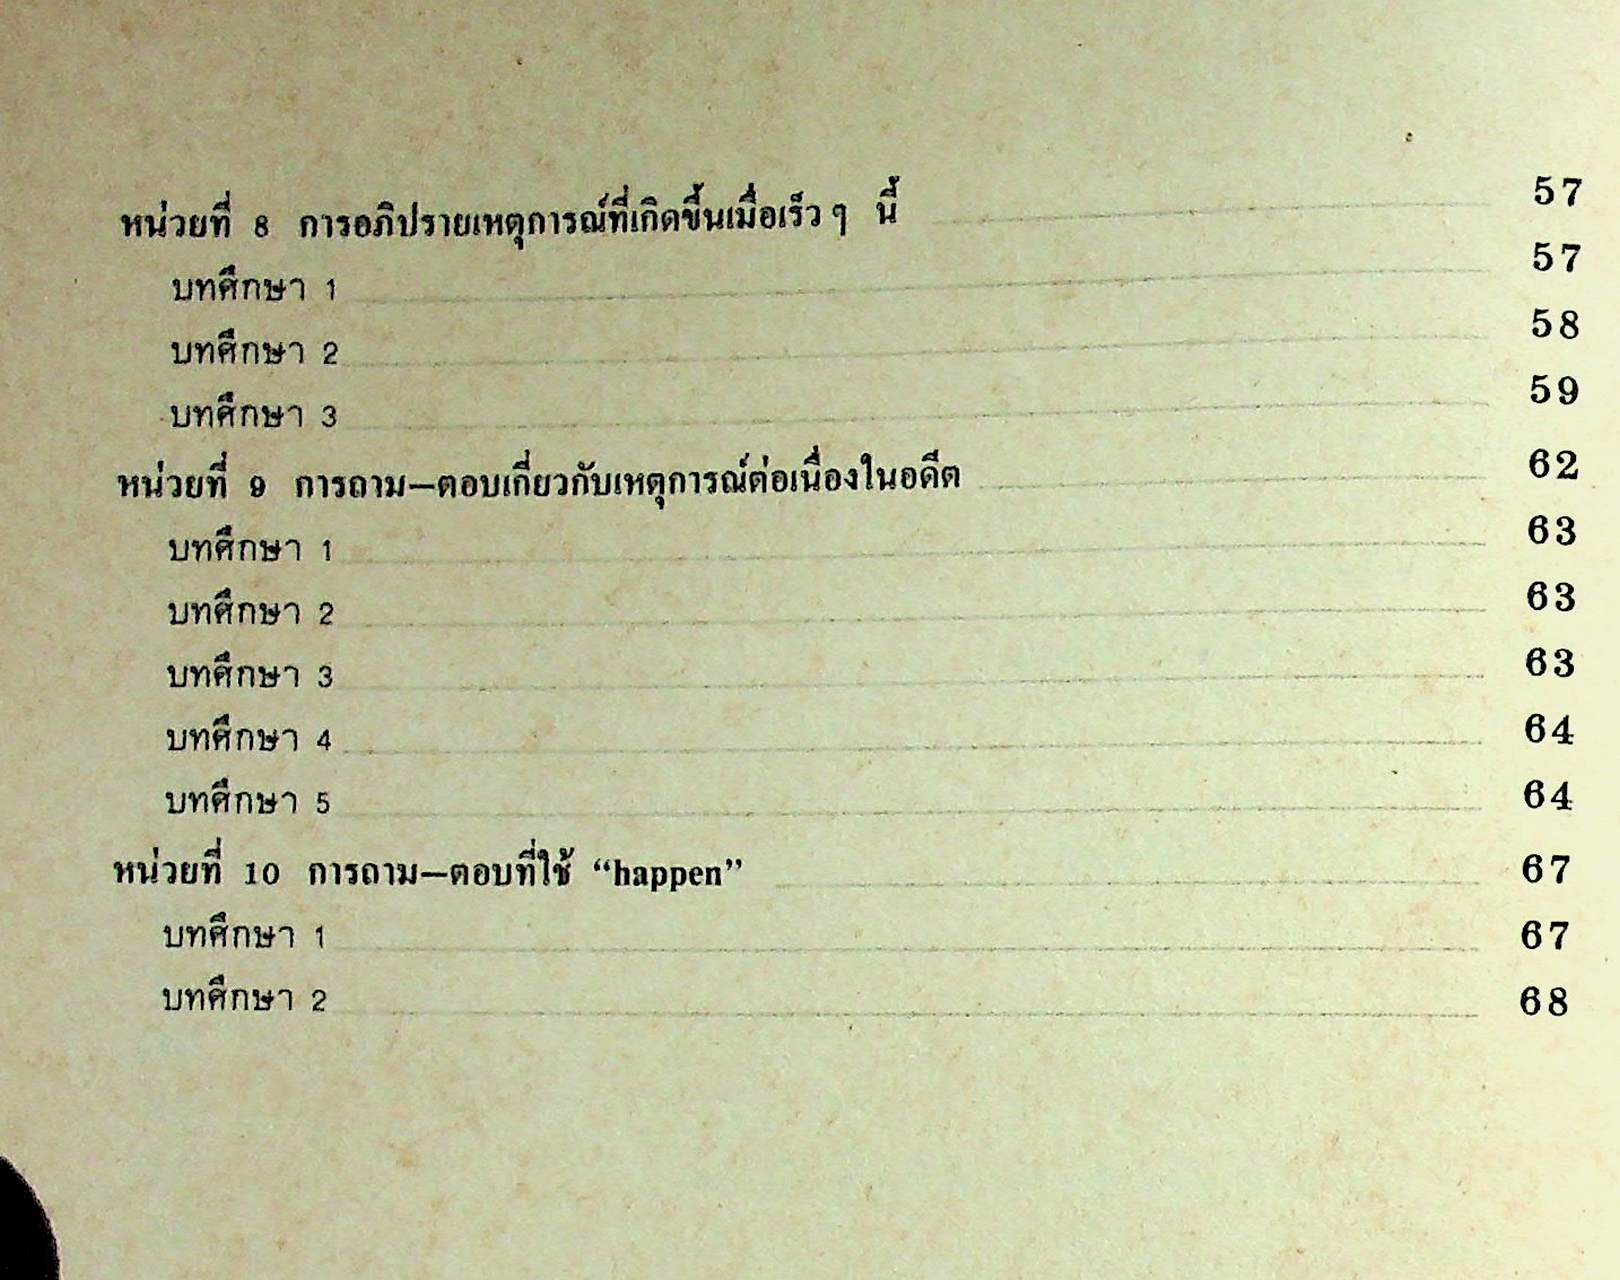 หน่วยที่ 8 การอภิปรายเหตุการณ์ที่เกิดขึ้นเมื่อเร็วๆ นี้ 57
บทศึกษา 1 57
บทศึกษา 2 58
บทศึกษา 3 59
หน่วยที่ 9 การถาม—ตอบเกี่ยวกับเหตุการณ์ต่อเนื่องในอดีต 62
บทศึกษา 1 63
บทศึกษา 2 63
บทศึกษา 3 63
บทศึกษา 4 64
บทศึกษา 5 64
หน่วยที่ 10 การถาม—ตอบที่ใช้ “happen” 67
บทศึกษา 1 67
บทศึกษา 2 68